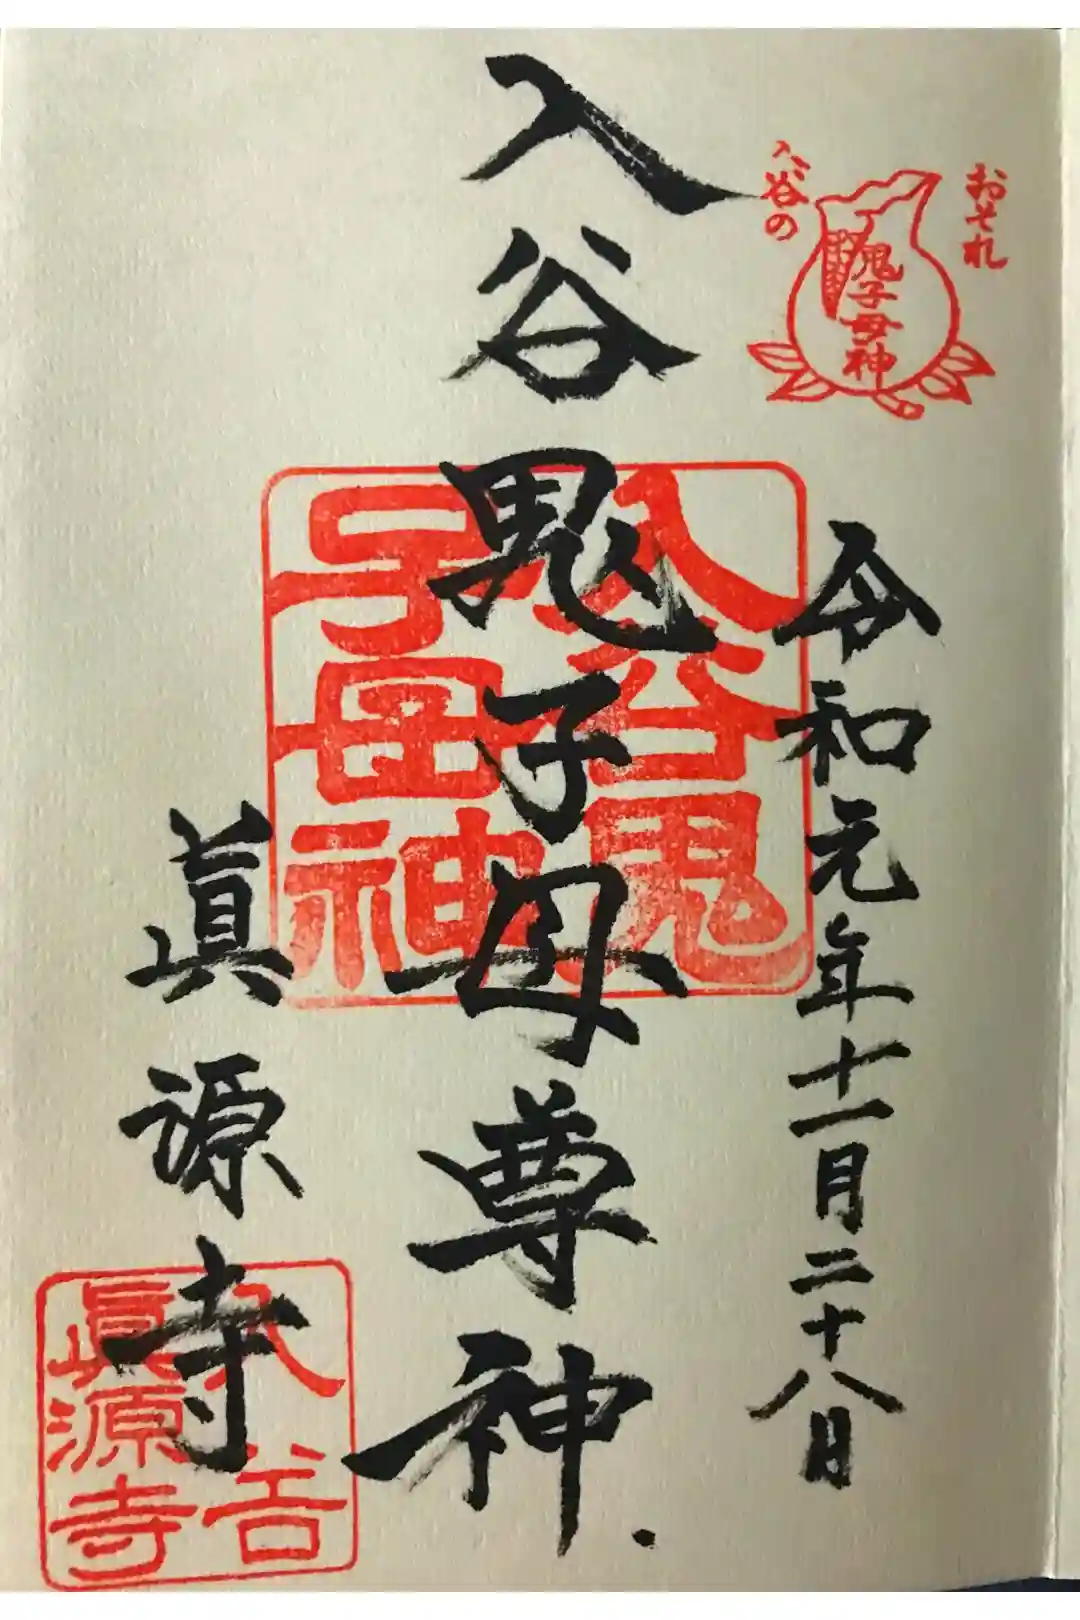 おそれ
入谷の
鬼子母神
令和元年十一月二十八日
入谷鬼子母尊神
入谷鬼
子母神
眞源寺
入谷
眞源寺